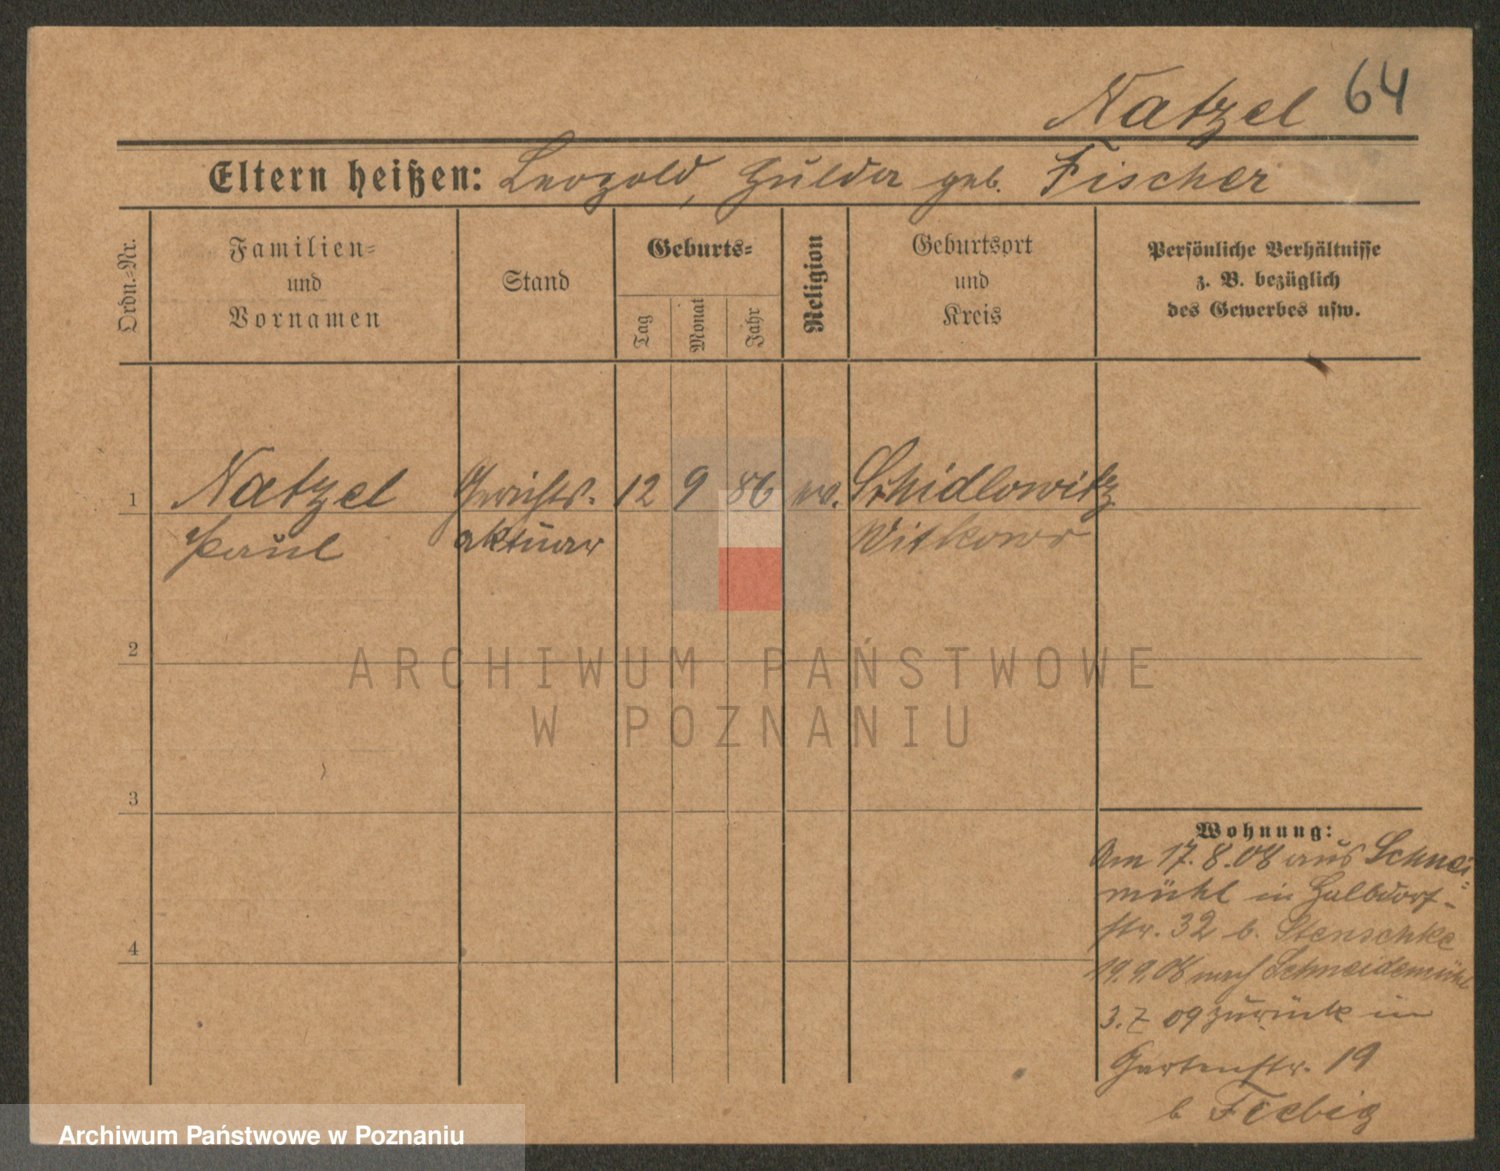 Natzel 64
Eltern heißen: Leopold, Hulda geb. Fischer
Ordn.=Nr.
Familien=
und
Vornamen
Stand
Geburts=
Tag
Monat
Jahr
Religion
Geburtsort
und
Kreis
Persönliche Verhältnisse
z. B. bezüglich
des Gewerbes usw.
1 Natzel Gerichts= 12 9 86 ev. Schidlowitz
Paul aktuar Witkowo
2
3
4
Wohnung:
Am 17.8.08 aus Schnei=
mühl in Halbdorf-
str. 32 b. Stenschke
19.9.08 nach Schneidemühl
3.7 09 zurück in
Gartenstr. 19
b Fiebig
ARCHIWUM PAŃSTWOWE
W POZNANIU
Archiwum Państwowe w Poznaniu